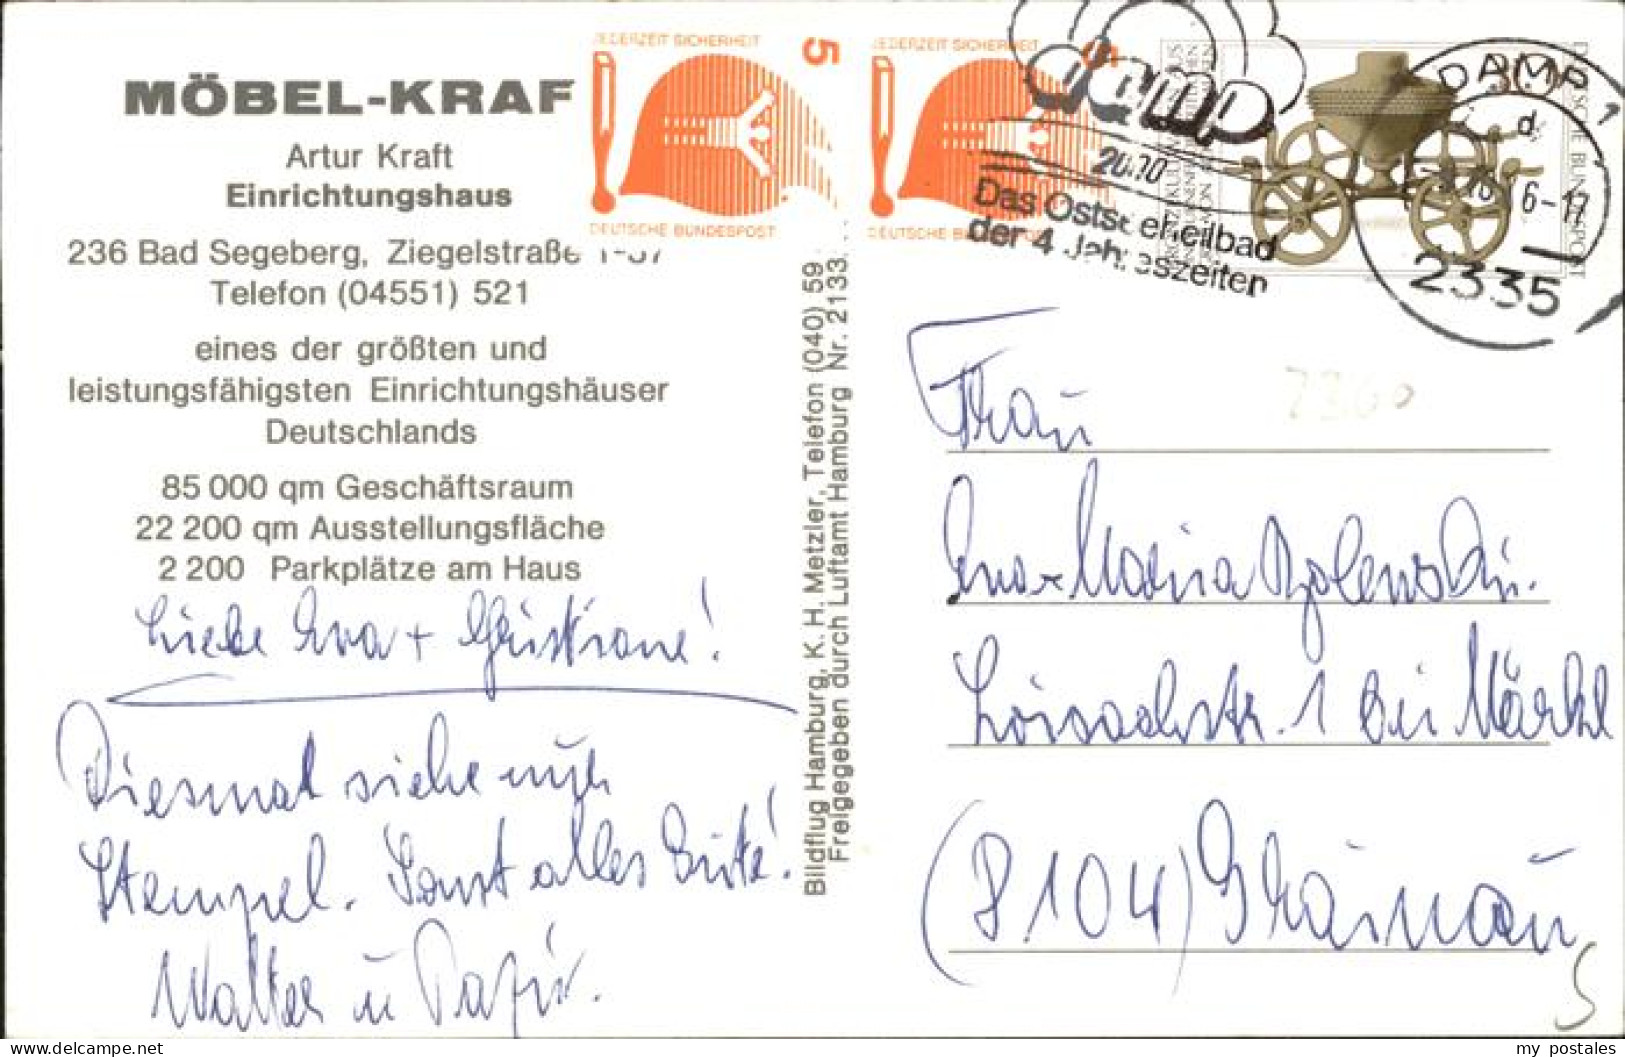 MÖBEL-KRAF
Artur Kraft
Einrichtungshaus
236 Bad Segeberg, Ziegelstraße 1-37
Telefon (04551) 521
eines der größten und
leistungsfähigsten Einrichtungshäuser
Deutschlands
85 000 qm Geschäftsraum
22 200 qm Ausstellungsfläche
2 200 Parkplätze am Haus
Liebe Eva +
Diesmal siehe
Stempel. Sonst alles Gute!
Walter u
Bildflug Hamburg, K. H. Metzler, Telefon (040) 59
Freigegeben durch Luftamt Hamburg Nr. 2133
JEDERZEIT SICHERHEIT
5
DEUTSCHE BUNDESPOST
JEDERZEIT SICHERHEIT
5
DEUTSCHE BUNDESPOST
damp
2000
Das Ostseeheilbad
der 4 Jahreszeiten
DEUTSCHE BUNDESPOST
DAMP 1
d
6-17
2335
2360
Frau
Eva-Maria
1 bei Märkl
(8104) Grainau
my postales